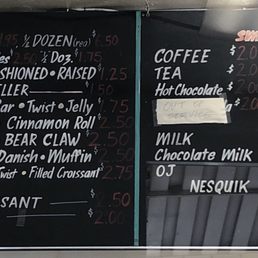 .95 ½ DOZEN (reg) $6.50
es ½ Doz. $1.75
SHIONED • RAISED $1.25
LLER
ar • Twist • Jelly $1.75
Cinnamon Roll $2.50
BEAR CLAW $2.50
Danish • Muffin $2.50
Twist • Filled Croissant $2.75
SANT $2.50
$2.00
COFFEE $2.0
TEA $2.0
Hot Chocolate $2.0
OUT OF
SERVICE
MILK
Chocolate Milk
OJ
NESQUIK